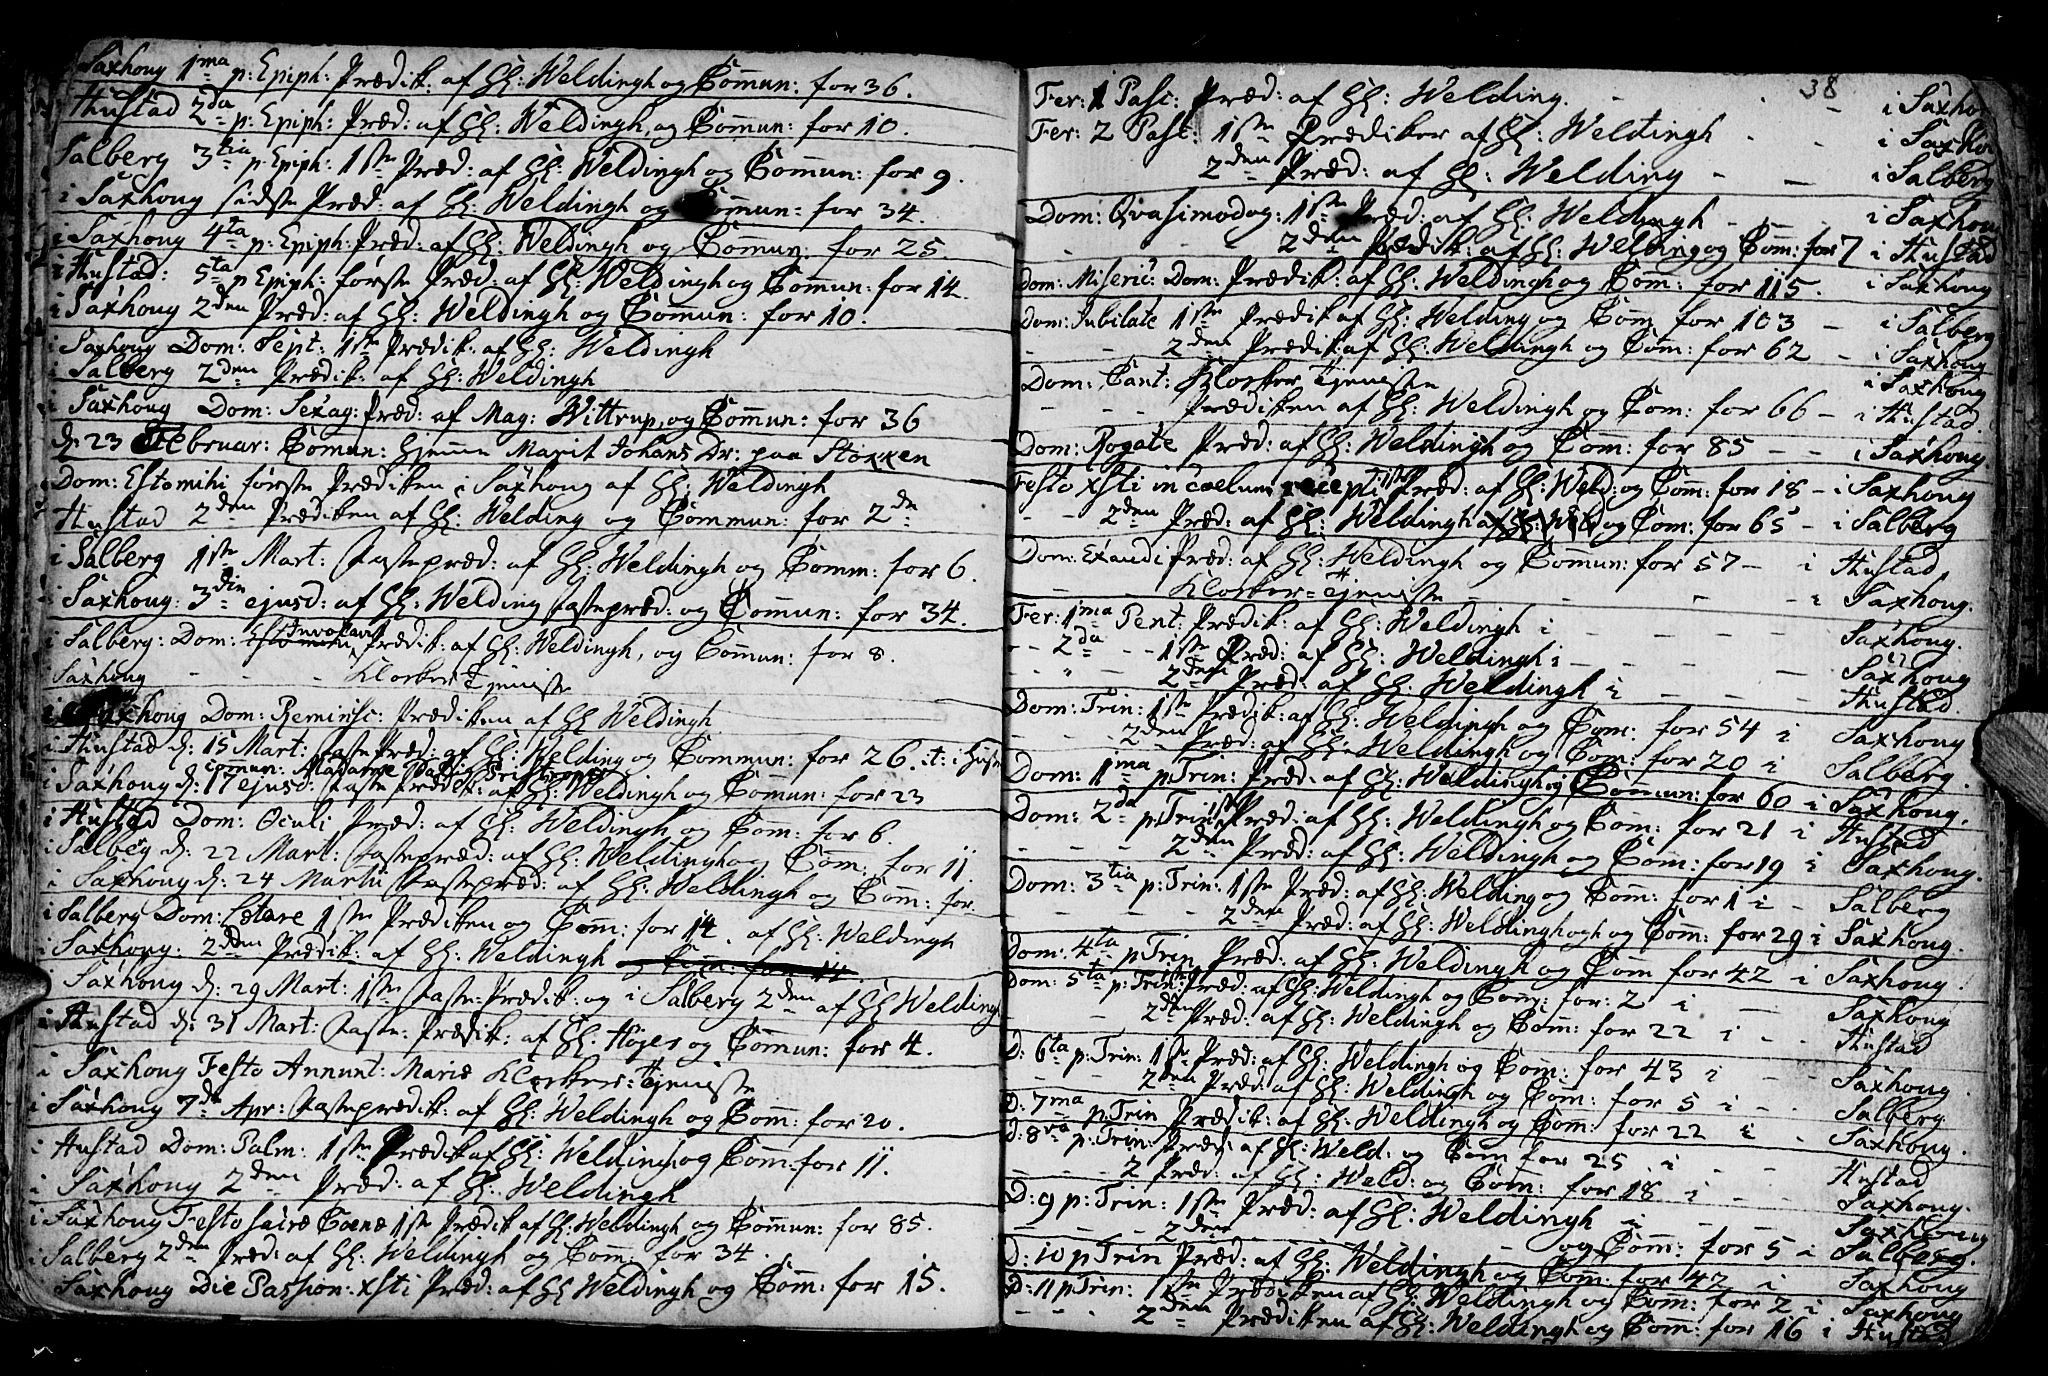 Saxhoug 1ma p: Epiph: Prædik: af Hl: Weldingh og Com̄un: for 36.
Hustad 2da p: Epiph: Præd: af Hl: Weldingh, og Com̄un: for 10.
Salberg 3tia p: Epiph: 1ste Præd: af Hl: Weldingh og Com̄un: for 9.
i Saxhoug sidste Præd: af Hl: Weldingh og Com̄un: for 34.
i Saxhoug 4ta p: Epiph: Præd: af Hl: Weldingh og Com̄un: for 25.
i Hustad: 5ta p Epiph: første Præd: af Hl: Weldingh og Com̄un: for 14.
i Saxhoug 2den Præd: af Hl: Weldingh og Com̄un: for 10.
i Saxhoug Dom: Sept: 1ste Prædik: af Hl: Weldingh
i Salberg 2den Prædik: af Hl: Weldingh
i Saxhoug Dom: Sexag: Præd: af Mag: Wittrup, og Com̄un: for 36
d: 23 Februar: Com̄un: hjemme Marit Johans Dr: paa Stoxken
Dom: Estomihi første Prædiken i Saxhoug af Hl: Weldingh
Hustad 2den Prædiken af Hl: Welding og Commun: for 2de
i Salberg 1ste Mart: Fastepræd: af Hl: Weldingh og Comm: for 6.
i Saxhoug: 3die ejusd: af Hl: Welding Fastepræd: og Com̄un: for 34.
i Salberg: Dom: Invocav Prædik: af Hl: Weldingh, og Com̄un: for 8.
Saxhoug - - - Klocker Tjeniste
i Saxhoug Dom: Reminisc: Prædiken af Hl Weldingh
i Hustad d: 15 Mart: Faste Præd: af Hl: Welding og Commun: for 26. t: i Huse
comun: Madame
i Saxhoug d: 17 ejusd: Faste Prædik: af Hl: Weldingh og Com̄un: for 23
i Hustad Dom: Oculi Præd: af Hl: Weldingh og Com̄: for 6.
i Salberg d: 22 Mart: Fastepræd: af Hl: Weldingh og Com̄: for 11.
i Saxhoug d: 24 Martii Fastepræd: af Hl: Weldingh og Com̄: for
i Salberg Dom: Lætare 1ste Prædiken og Com̄: for 14. af Hl: Weldingh
i Saxhoug: 2den Prædik: af Hl: Weldingh Com̄: for 14.
i Saxhoug d: 29 Mart: 1ste Faste-Prædik: og i Salberg 2den af Hl Weldingh
i Hustad d: 31 Mart: Faste: Prædik: af Hl: Høyer og Com̄un: for 4.
i Saxhoug Festo Annunt: Mariæ Klocker-Tjeniste
i Saxhoug 7de Apr: Fasteprædik: af Hl: Weldingh og Com̄: for 20.
i Hustad Dom: Palm: 1ste Prædik af Hl: Weldingh og Com̄: for 11.
i Saxhoug 2den Præd: af Hl: Weldingh
i Saxhoug Festo sacræ Coenæ 1ste Prædik af Hl: Weldingh og Com̄un: for 85.
i Salberg 2den Præd: af Hl: Weldingh og Com̄: for 34.
Saxhoug Die Passion: xsti Præd: af Hl Weldingh og Com̄: for 15.
38
Fer: 1 Pasc: Præd: af Hl: Welding. - - i Saxho
Fer: 2 Pasc: 1ste Prædiken af Hl: Weldingh - - i Saxho
2den Præd: af Hl: Welding - - i Salberg
Dom: Qvasimodog: 1ste Præd: af Hl: Weldingh - - i Saxhoug
- - - 2den Prædik: af Hl: Welding og Com̄: for 7 i Hustad
Dom: Miseric: Dom: Prædik: af Hl: Weldingh og Com̄: for 115. i Saxhoug
Dom: Jubilate 1ste Prædik af Hl: Welding og Com̄ for 103 - i Salberg
- - 2den Prædik: af Hl: Weldingh og Com̄: for 62 - i Saxhoug
Dom: Cant: Klocker Tjeniste i Saxhoug
- - - Prædiken af Hl: Weldingh og Com: for 66 - i Hustad.
Dom: Rogate Præd: af Hl: Weldingh og Com: for 85 - - i Saxhoug
Festo xsti in coelum recepti 1ste Præd: af Hl: Weld: og Com̄: for 18 - i Saxhoug
- - 2den Præd: af Hl: Weldingh og Com: for 65 - i Salberg
Dom: Exaudi Præd: af Hl: Weldingh og Com̄un: for 57 - i Hustad
- - - Klocker=Tjeniste - - - i Saxhoug.
Fer: 1ma Pent: Prædik: af Hl: Weldingh i - - - Saxhoug.
- - 2da - - 1ste Præd: af Hl: Weldingh i - - - Saxhoug
- " - 2den Præd: af Hl: Weldingh i - - - Hustad.
Dom: Trin: 1ste Prædik: af Hl: Weldingh og Com̄: for 54 i Saxhoug
- - - 2den Præd: af Hl: Weldingh og Com: for 20 i Salberg.
Dom: 1ma p: Trin: Præd: af Hl: Weldingh og Com̄un: for 60 i Saxhoug.
Dom: 2da p: Trin 1ste Præd: af Hl: Weldingh og Com̄: for 21 i Hustad
- - - 2den Præd: af Hl: Weldingh og Com̄: for 19 i Saxhoug.
Dom: 3tia p: Trin: 1ste Præd: af Hl: Welding og Com̄: for 1 i - Salberg
- - - - 2den Præd: af Hl: Weldingh og Com̄: for 29 i Saxhoug.
Dom: 4ta p Trin Præd: af Hl: Weldingh og Com̄ for 42 i Saxhoug.
Dom: 5ta p: Trin: Præd: af Hl: Weldingh og Com̄: for: 2 i - - Saxhoug
- - 2den Præd: af Hl: Weldingh og Com̄: for 22 i - - Hustad
D: 6ta p: Trin: 1ste Præd: af Hl: Weldingh og Com̄: for 43 i - - Saxhoug
- - - 2den Præd: af Hl: Weldingh og Com̄: for 5 i - - Salberg
D: 7ma p Trin Prædik: af Hl: Weldingh og Com̄: for 22 i - Saxhoug.
D: 8va p: Trin: Præd: af Hl: Weld: og Com̄ for 25 i - - Hustad
- - - 2 Præd: af Hl: Weld: og Com̄: for 18 i - - Saxhoug.
D: 9 p: Trin: 1ste Præd: af Hl: Weldingh i - - Saxhoug
- - - 2den - - og Com̄: for 5 i Salberg.
D: 10 p Trin Præd: af Hl: Weldingh og Com̄: for 42 i Saxhoug
D: 11 p Trin: 1ste Prædiken af Hl: Weldingh og Com̄: for 2 i Saxhoug
- - - 2den Prædiken af Hl: Weldingh og Com̄: for 16 i Hustad